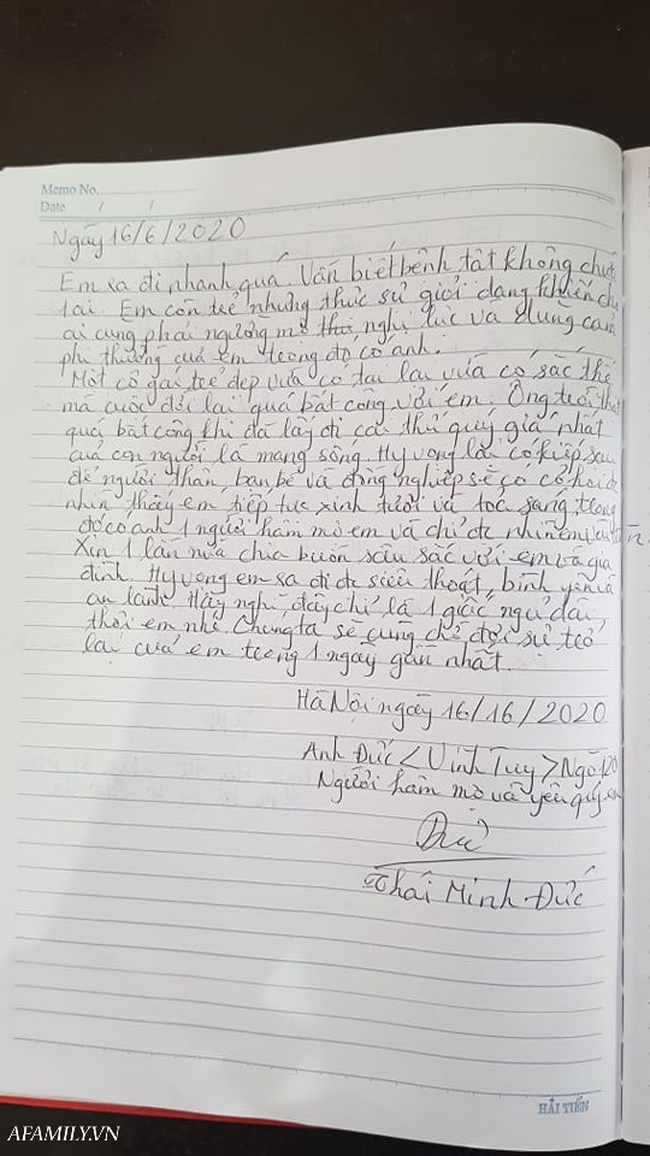 Memo No.
Date / /
Ngày 16/6/2020
Em ra đi nhanh quá. Vẫn biết bệnh tật không chừa
1 ai. Em còn trẻ nhưng thực sự giỏi dang khiến cho
ai cũng phải ngưỡng mộ nghị lực và dũng cảm
phi thường của em trong đó có anh.
Một cô gái trẻ đẹp vừa có tài lại vừa có sắc thế
mà cuộc đời lại quá bất công với em. Ông trời thật
quá bất công khi đã lấy đi cái thứ quý giá nhất
của con người là mạng sống. Hy vọng lần có kiếp sau
để người thân, bạn bè và đồng nghiệp sẽ có cơ hội đc
nhìn thấy em tiếp tục xinh tươi và toả sáng, trong
đó có anh 1 người hâm mộ em và chỉ đc nhìn em
Xin 1 lần nữa chia buồn sâu sắc với em và gia
đình. Hy vọng em sa đi đc siêu thoát, bình yên và
an lành. Hãy nghĩ đây chỉ là 1 giấc ngủ dài,
thôi em nhé. Chúng ta sẽ cùng chờ đợi sự trở
lại của em trong 1 ngày gần nhất.
Hà Nội ngày 16/16/2020
Anh Đức <Vĩnh Tuy> Ngõ 120
Người hâm mộ và yêu quý em
Đức
Thái Minh Đức
HẢI TIẾN
AFAMILY.VN